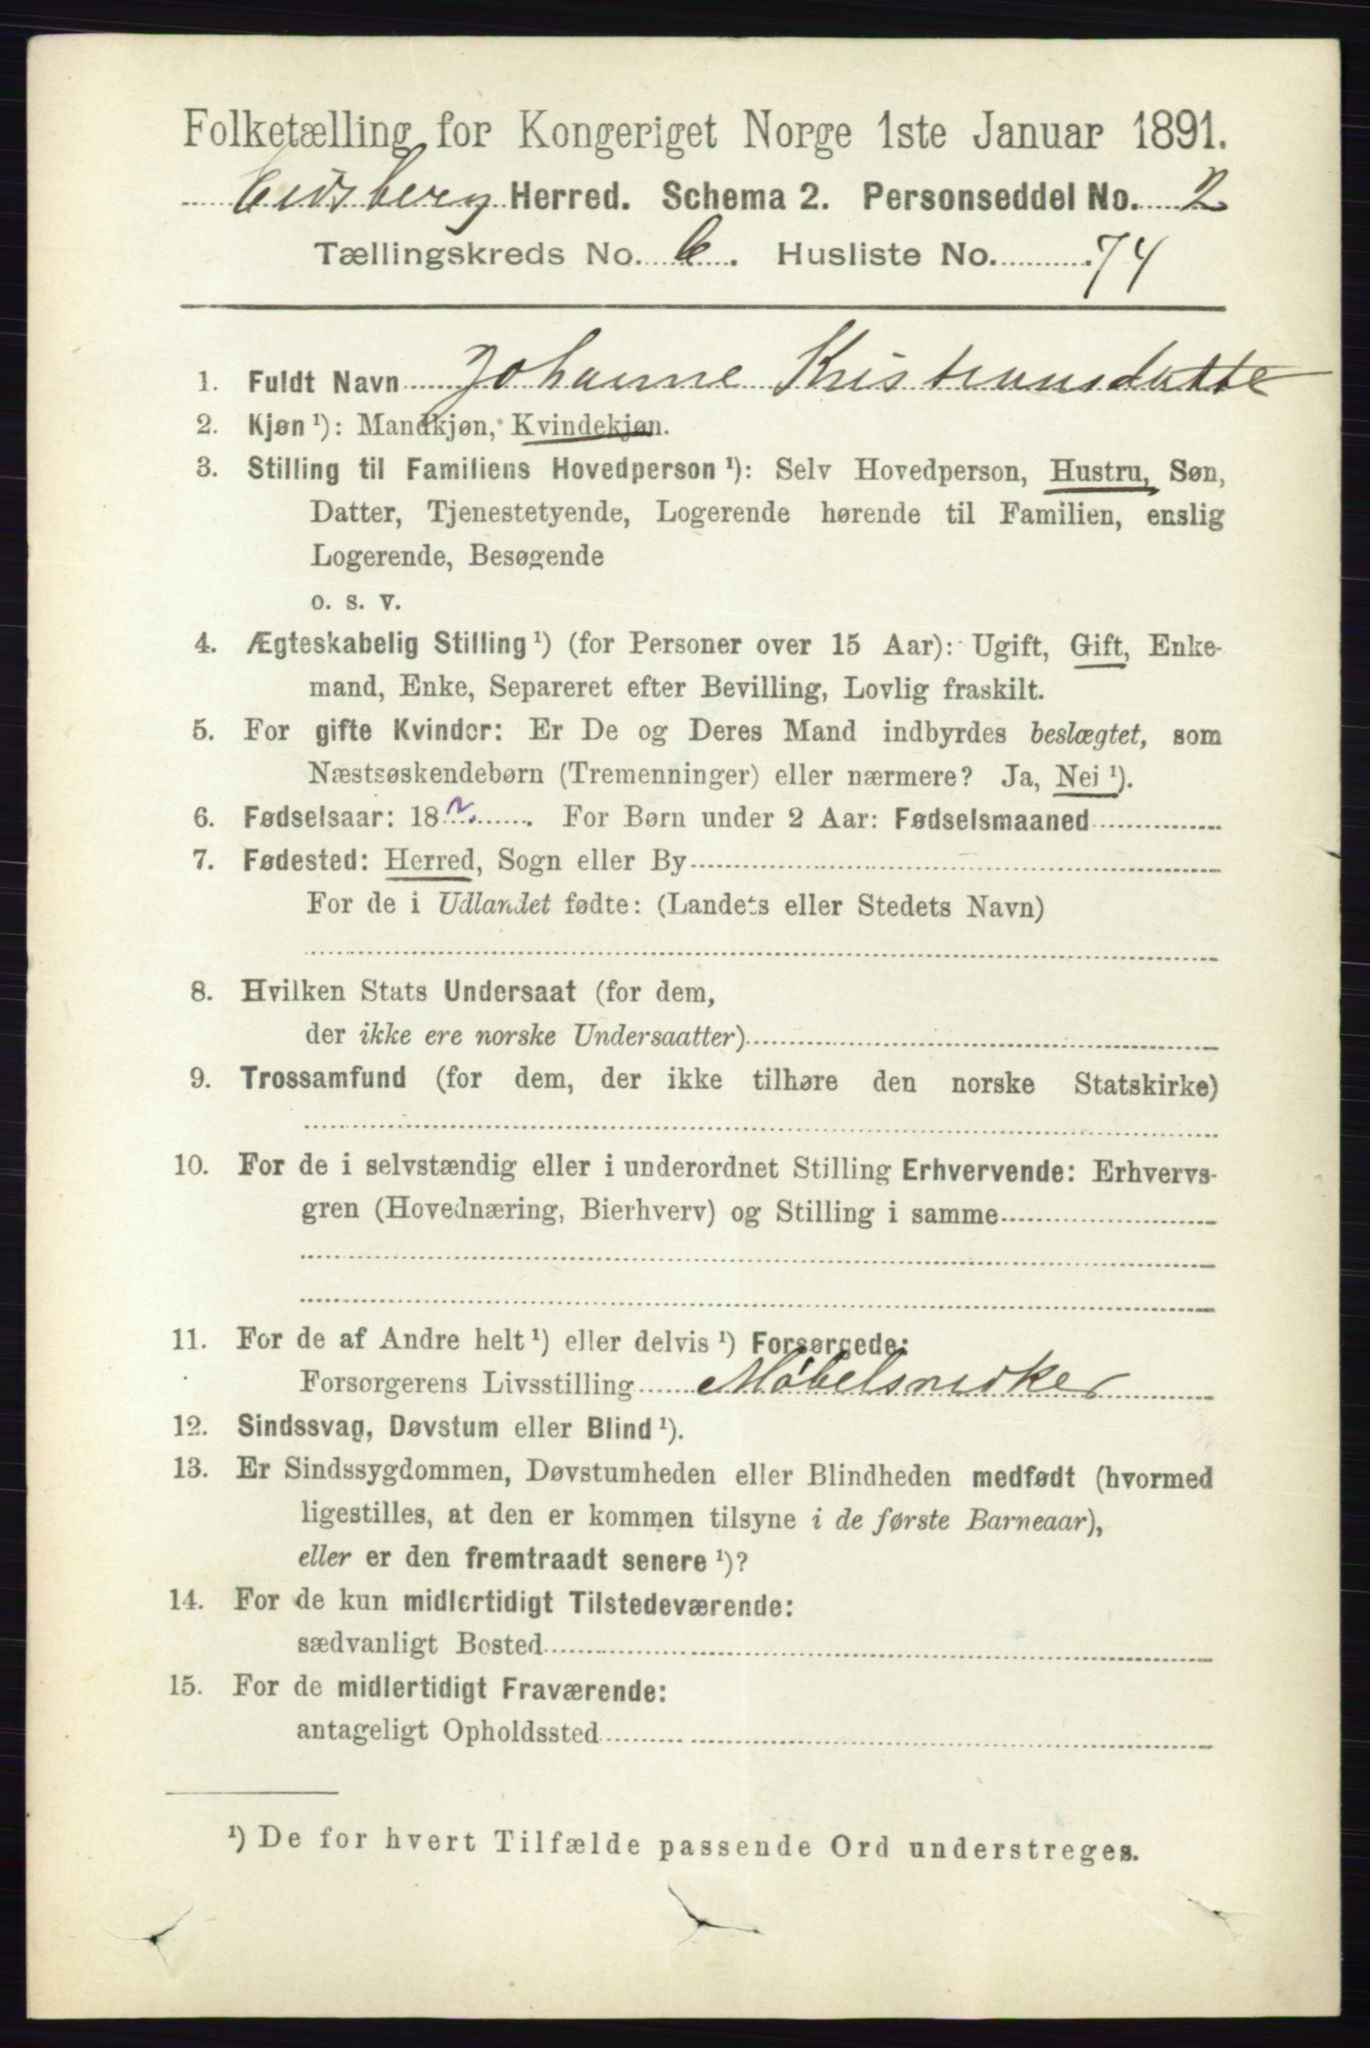 Folketælling for Kongeriget Norge 1ste Januar 1891.
Eidsberg Herred. Schema 2. Personseddel No. 2
Tællingskreds No. 6. Husliste No. 74
1. Fuldt Navn Johanne Kristiansdatte
2. Kjøn ¹): Mandkjøn, Kvindekjøn.
3. Stilling til Familiens Hovedperson ¹): Selv Hovedperson, Hustru, Søn,
Datter, Tjenestetyende, Logerende hørende til Familien, enslig
Logerende, Besøgende
o. s. v.
4. Ægteskabelig Stilling ¹) (for Personer over 15 Aar): Ugift, Gift, Enke-
mand, Enke, Separeret efter Bevilling, Lovlig fraskilt.
5. For gifte Kvinder: Er De og Deres Mand indbyrdes beslægtet, som
Næstsøskendebørn (Tremenninger) eller nærmere? Ja, Nei ¹).
6. Fødselsaar: 182. For Børn under 2 Aar: Fødselsmaaned
7. Fødested: Herred, Sogn eller By
For de i Udlandet fødte: (Landets eller Stedets Navn)
8. Hvilken Stats Undersaat (for dem,
der ikke ere norske Undersaatter)
9. Trossamfund (for dem, der ikke tilhøre den norske Statskirke)
10. For de i selvstændig eller i underordnet Stilling Erhvervende: Erhvervs-
gren (Hovednæring, Bierhverv) og Stilling i samme
11. For de af Andre helt ¹) eller delvis ¹) Forsørgede:
Forsørgerens Livsstilling Møbelsnedker
12. Sindssvag, Døvstum eller Blind ¹).
13. Er Sindssygdommen, Døvstumheden eller Blindheden medfødt (hvormed
ligestilles, at den er kommen tilsyne i de første Barneaar),
eller er den fremtraadt senere ¹)?
14. For de kun midlertidigt Tilstedeværende:
sædvanligt Bosted
15. For de midlertidigt Fraværende:
antageligt Opholdssted
¹) De for hvert Tilfælde passende Ord understreges.